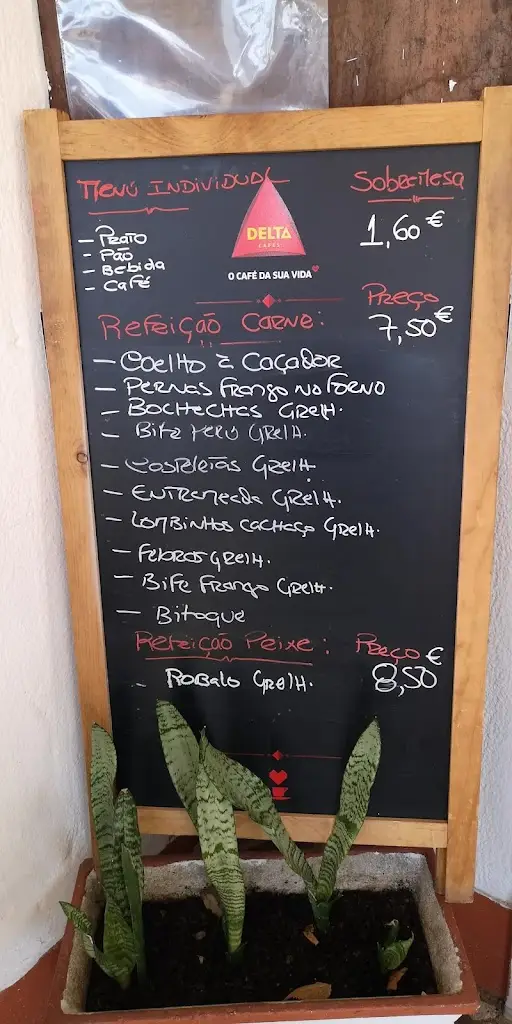 Menú Individual
Sobremesa
- Prato
- Pão
- Bebida
- Café
DELTA
CAFÉS
O CAFÉ DA SUA VIDA
1,60 €
Preço
Refeição Carne:
7,50 €
- Coelho à Caçador
- Pernas Frango no Forno
- Bochechas Grelh.
- Bife Perú Grelh.
- Costeletas Grelh.
- Entremeada Grelh.
- Lombinhos Cachaço Grelh.
- Febras Grelh.
- Bife Frango Grelh.
- Bitoque
Refeição Peixe:
Preço
- Robalo Grelh.
8,50 €